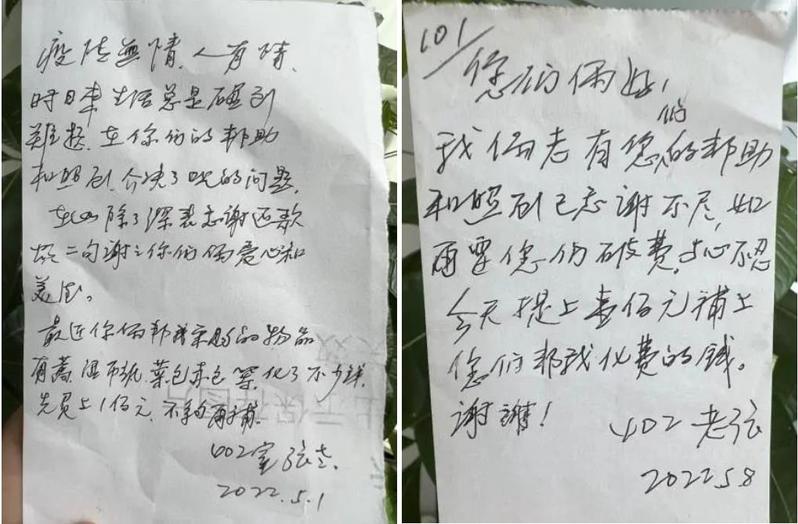 疫情無情，人有情，
时日幸生活总是碰到
难题，在你们的帮助
和照顾，介决了吃的问题，
在此除了深表志谢还欲
二句谢之你们俩爱心和
美德。
最近你俩帮我采购的物品
有 湿巾纸 菜包 等，化了不少钱
先贡上1佰元，不够再补。
402室 张
2022.5.1
101
您们俩好！
们
我俩老有您的帮助
和照顾已志谢不尽，如
再要您们破费，于心不忍
今天提上壹佰元补上
您们帮我化费的钱。
谢谢！
402 老张
2022.5.8